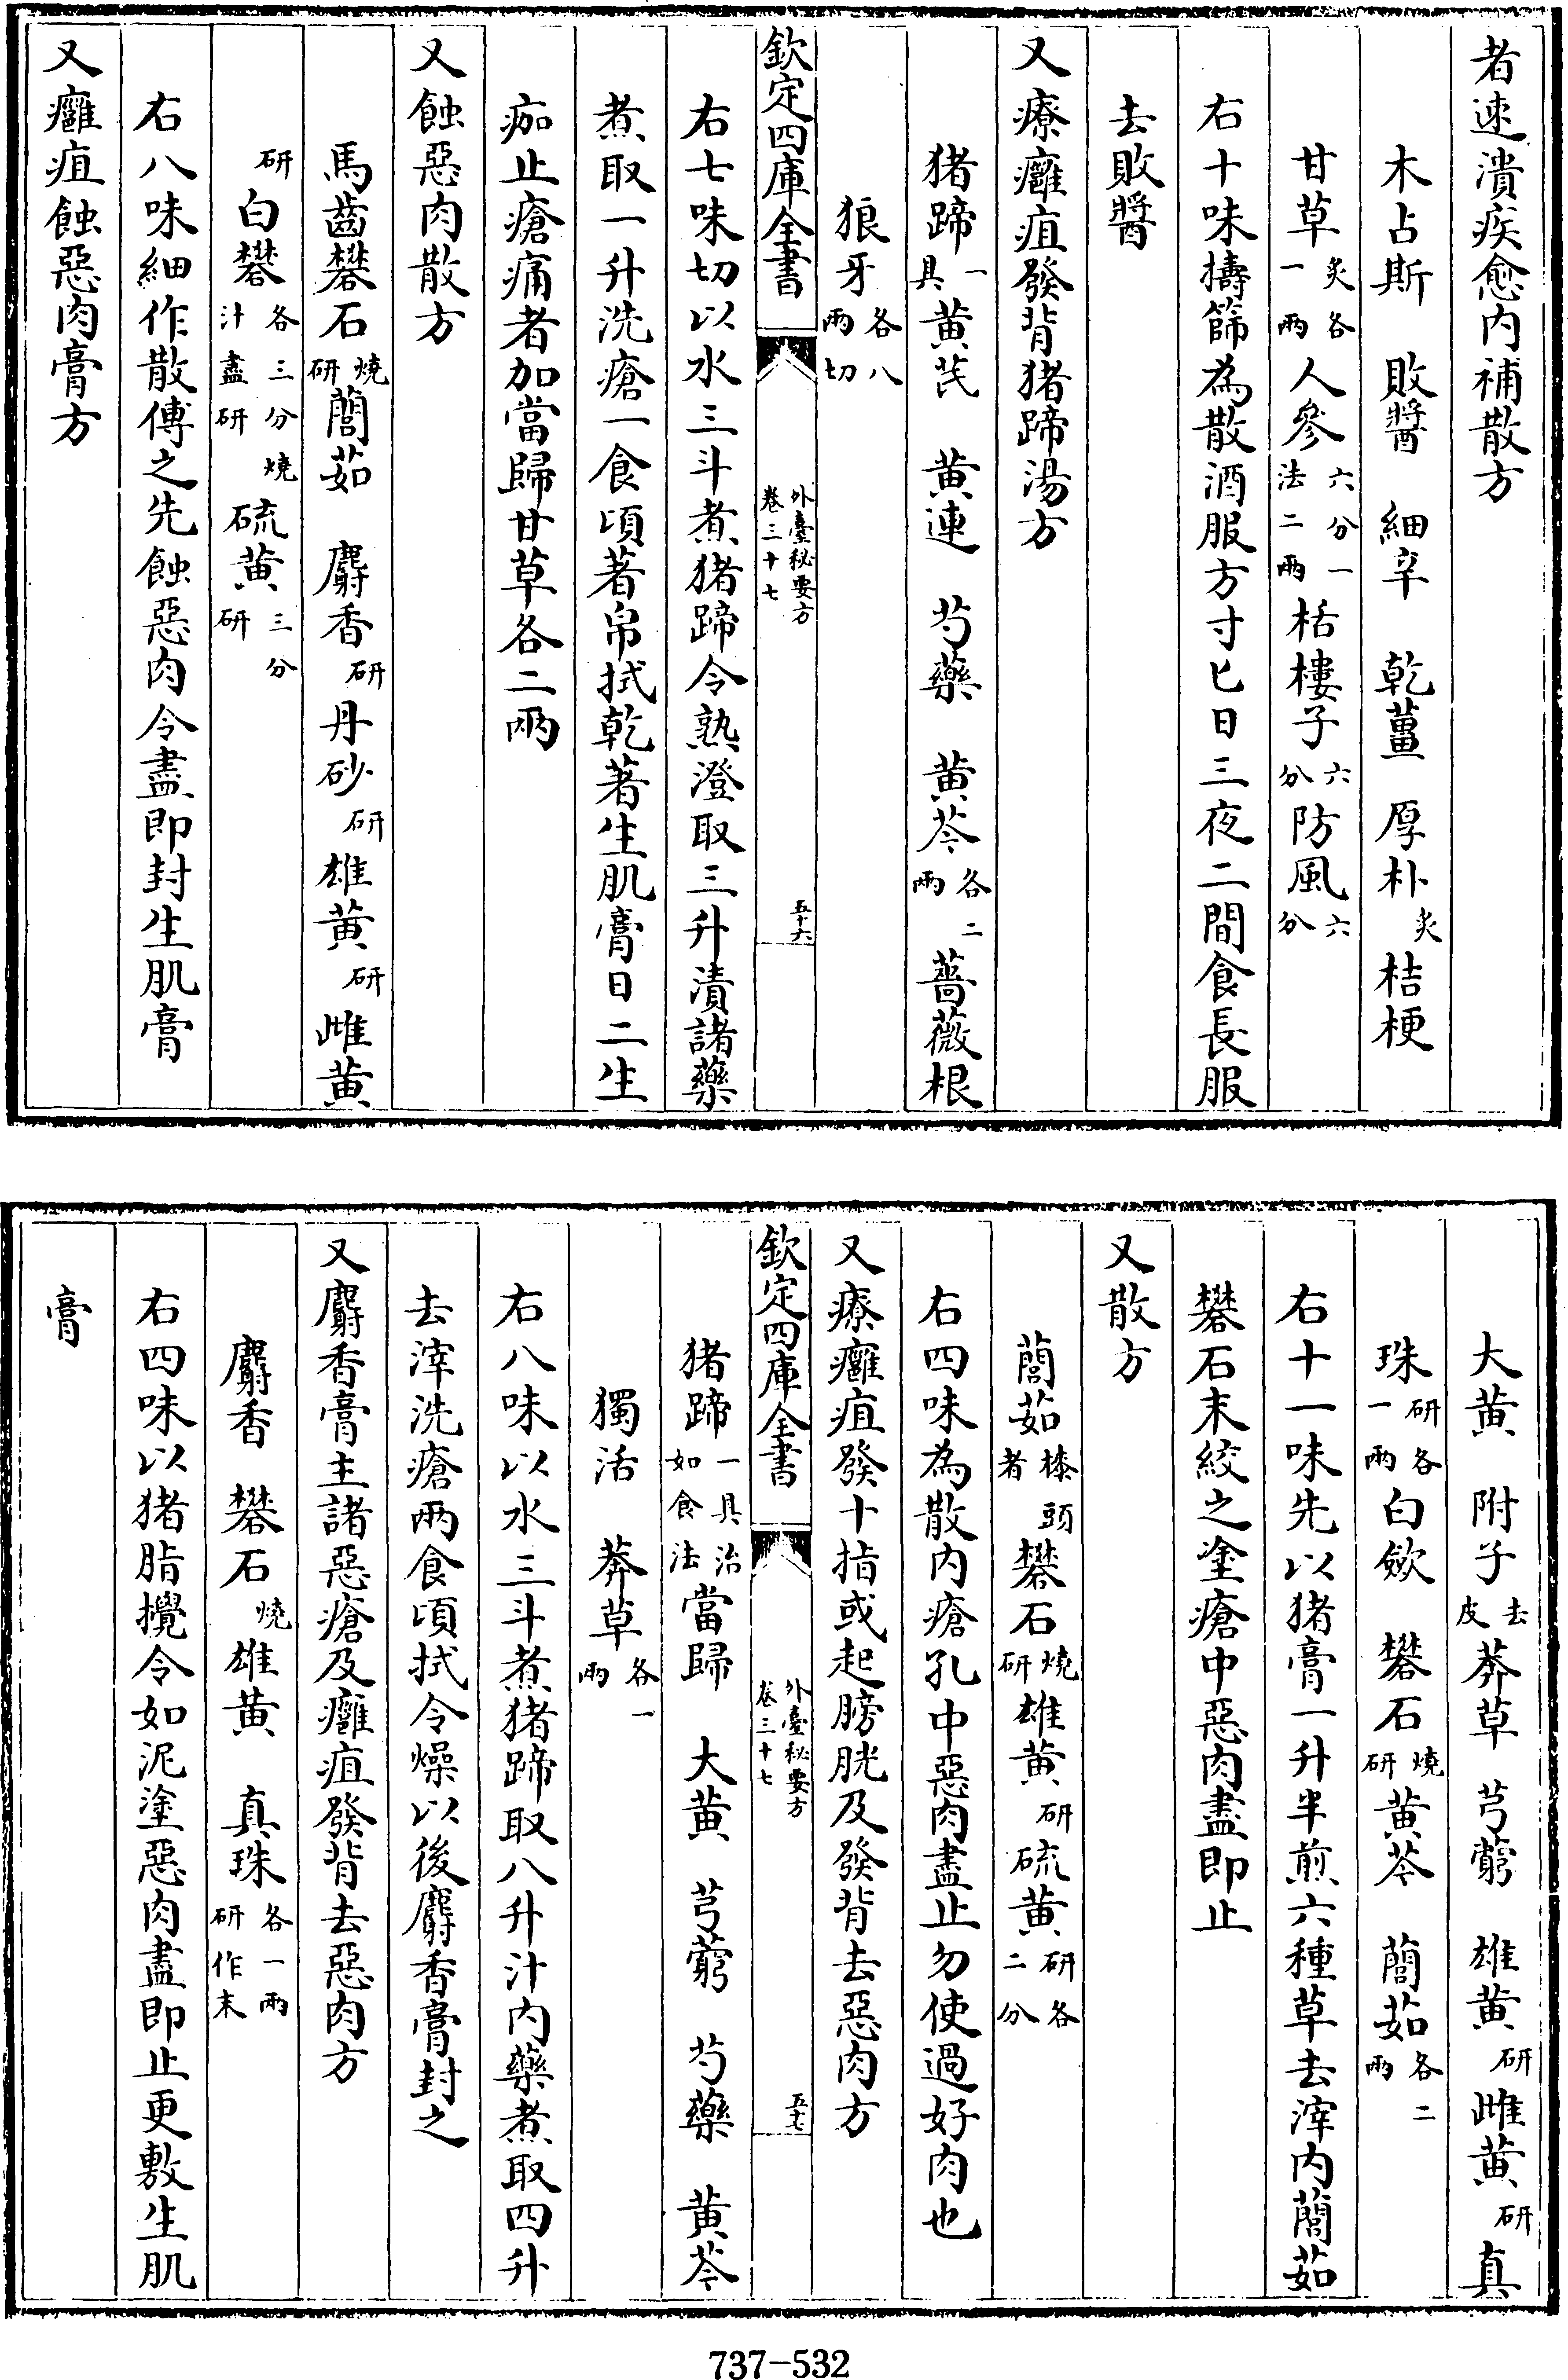 者速潰疾愈内補散方
木占斯　敗醬　細辛　乾薑　厚朴炙桔梗
甘草炙各一兩人參六分一法二兩栝樓子六分防風六分
右十味擣篩為散酒服方寸匕日三夜二間食長服
去敗醬
又療癰疽發背猪蹄湯方
猪蹄一具黄芪　黄連　芍藥　黄芩各二兩薔薇根
狼牙各八兩切
欽定四庫全書　外臺秘要方卷三十七　五十六
右七味切以水三斗煮猪蹄令熟澄取三升漬諸藥
煮取一升洗瘡一食頃著帛拭乾著生肌膏日二生
痂止瘡痛者加當歸甘草各二兩
又蝕惡肉散方
馬齒礬石燒研䕡茹　麝香研丹砂研雄黄研雌黄
研白礬各三分燒汁盡研硫黄三分研
右八味細作散傅之先蝕惡肉令盡即封生肌膏
又癰疽蝕惡肉膏方
大黄　附子去皮莽草　芎藭　雄黄研雌黄研真
珠研各一兩白歛　礬石燒研黄芩　䕡茹各二兩
右十一味先以猪膏一升半煎六種草去滓内䕡茹
礬石末絞之塗瘡中惡肉盡即止
又散方
䕡茹㯃頭者礬石燒研雄黄研硫黄研各二分
右四味為散内瘡孔中惡肉盡止勿使過好肉也
又療癰疽發十指或起膀胱及發背去惡肉方
欽定四庫全書　外臺秘要方卷三十七　五十七
猪蹄一具治如食法當歸　大黄　芎藭　芍藥　黄芩
獨活　莽草各一兩
右八味以水三斗煮猪蹄取八升汁内藥煮取四升
去滓洗瘡兩食頃拭令燥以後麝香膏封之
又麝香膏主諸惡瘡及癰疽發背去惡肉方
麝香　礬石燒雄黄　真珠各一兩研作末
右四味以猪脂攪令如泥塗惡肉盡即止更敷生肌
膏
737-532